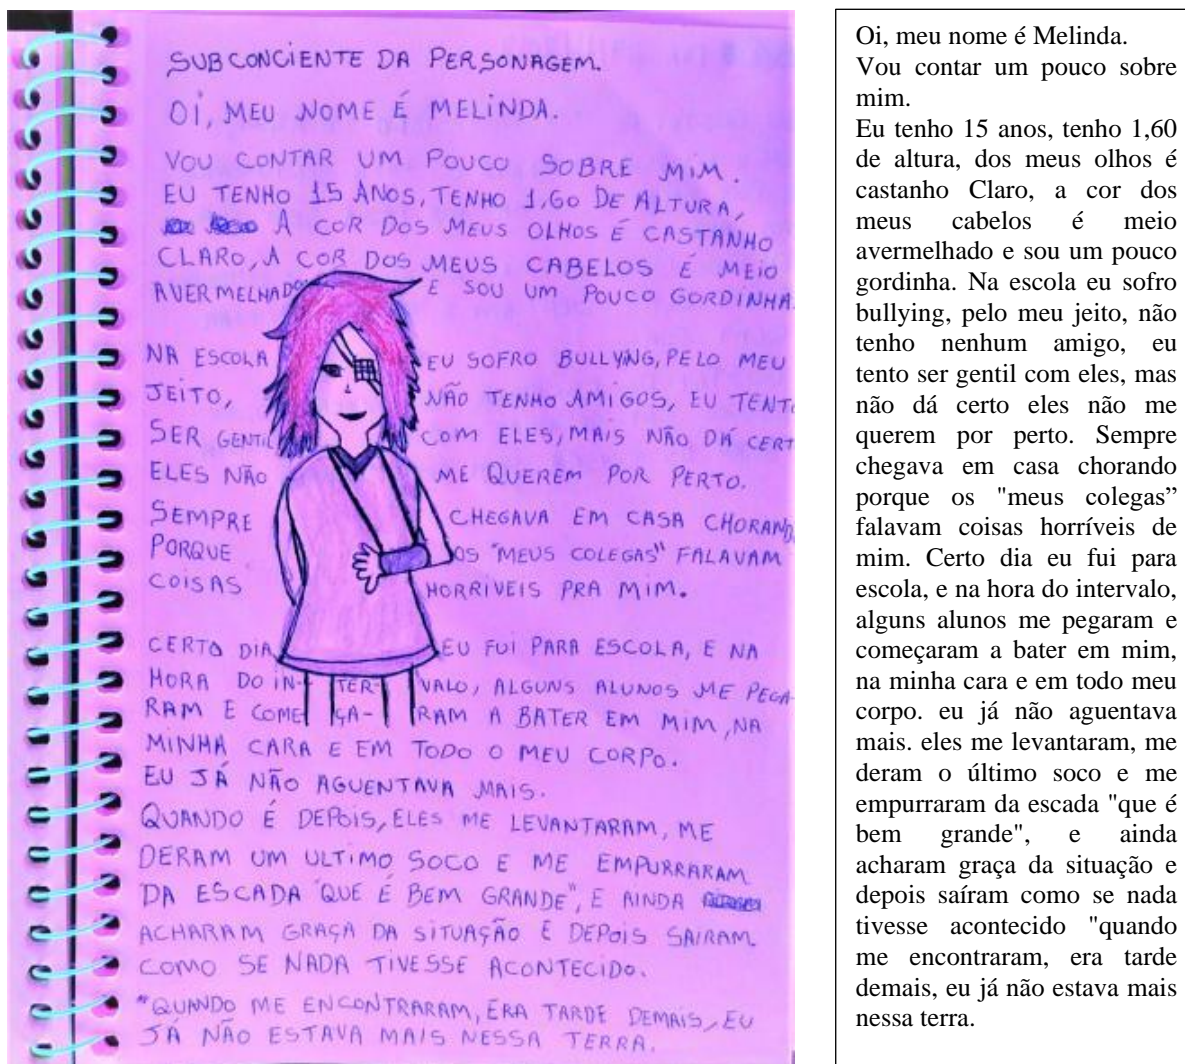 SUBCONCIENTE DA PERSONAGEM.
OI, MEU NOME É MELINDA.
VOU CONTAR UM POUCO SOBRE MIM.
EU TENHO 15 ANOS, TENHO 1,60 DE ALTURA,
A COR DOS MEUS OLHOS É CASTANHO
CLARO, A COR DOS MEUS CABELOS É MEIO
AVERMELHADO E SOU UM POUCO GORDINHA.
NA ESCOLA EU SOFRO BULLYNG, PELO MEU
JEITO, NÃO TENHO AMIGOS, EU TENTO
SER GENTIL COM ELES, MAIS NÃO DÁ CERT
ELES NÃO ME QUEREM POR PERTO.
SEMPRE CHEGAVA EM CASA CHORAND
PORQUE OS "MEUS COLEGAS" FALAVAM
COISAS HORRIVEIS PRA MIM.
CERTO DIA EU FUI PARA ESCOLA, E NA
HORA DO IN-TER-VALO, ALGUNS ALUNOS ME PEGA-
RAM E COMEÇA-RAM A BATER EM MIM, NA
MINHA CARA E EM TODO O MEU CORPO.
EU JÁ NÃO AGUENTAVA MAIS.
QUANDO É DEPOIS, ELES ME LEVANTARAM, ME
DERAM UM ULTIMO SOCO E ME EMPURRARAM
DA ESCADA "QUE É BEM GRANDE", E AINDA
ACHARAM GRAÇA DA SITUAÇÃO E DEPOIS SAIRAM
COMO SE NADA TIVESSE ACONTECIDO.
"QUANDO ME ENCONTRARAM, ERA TARDE DEMAIS, EU
JÁ NÃO ESTAVA MAIS NESSA TERRA.
Oi, meu nome é Melinda.
Vou contar um pouco sobre
mim.
Eu tenho 15 anos, tenho 1,60
de altura, dos meus olhos é
castanho Claro, a cor dos
meus cabelos é meio
avermelhado e sou um pouco
gordinha. Na escola eu sofro
bullying, pelo meu jeito, não
tenho nenhum amigo, eu
tento ser gentil com eles, mas
não dá certo eles não me
querem por perto. Sempre
chegava em casa chorando
porque os "meus colegas”
falavam coisas horríveis de
mim. Certo dia eu fui para
escola, e na hora do intervalo,
alguns alunos me pegaram e
começaram a bater em mim,
na minha cara e em todo meu
corpo. eu já não aguentava
mais. eles me levantaram, me
deram o último soco e me
empurraram da escada "que é
bem grande", e ainda
acharam graça da situação e
depois saíram como se nada
tivesse acontecido "quando
me encontraram, era tarde
demais, eu já não estava mais
nessa terra.